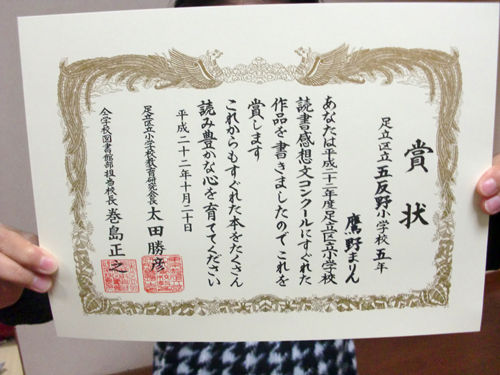 賞状
足立区立五反野小学校五年
鷹野まりん
あなたは平成二十二年度足立区立小学校
読書感想文コンクールにすぐれた
作品を書きましたのでこれを
賞します
これからもすぐれた本をたくさん
読み豊かな心を育ててください
平成二十二年十月二十日
足立区立小学校教育研究会長 太田勝彦
仝学校図書館部担当校長 巻島正之